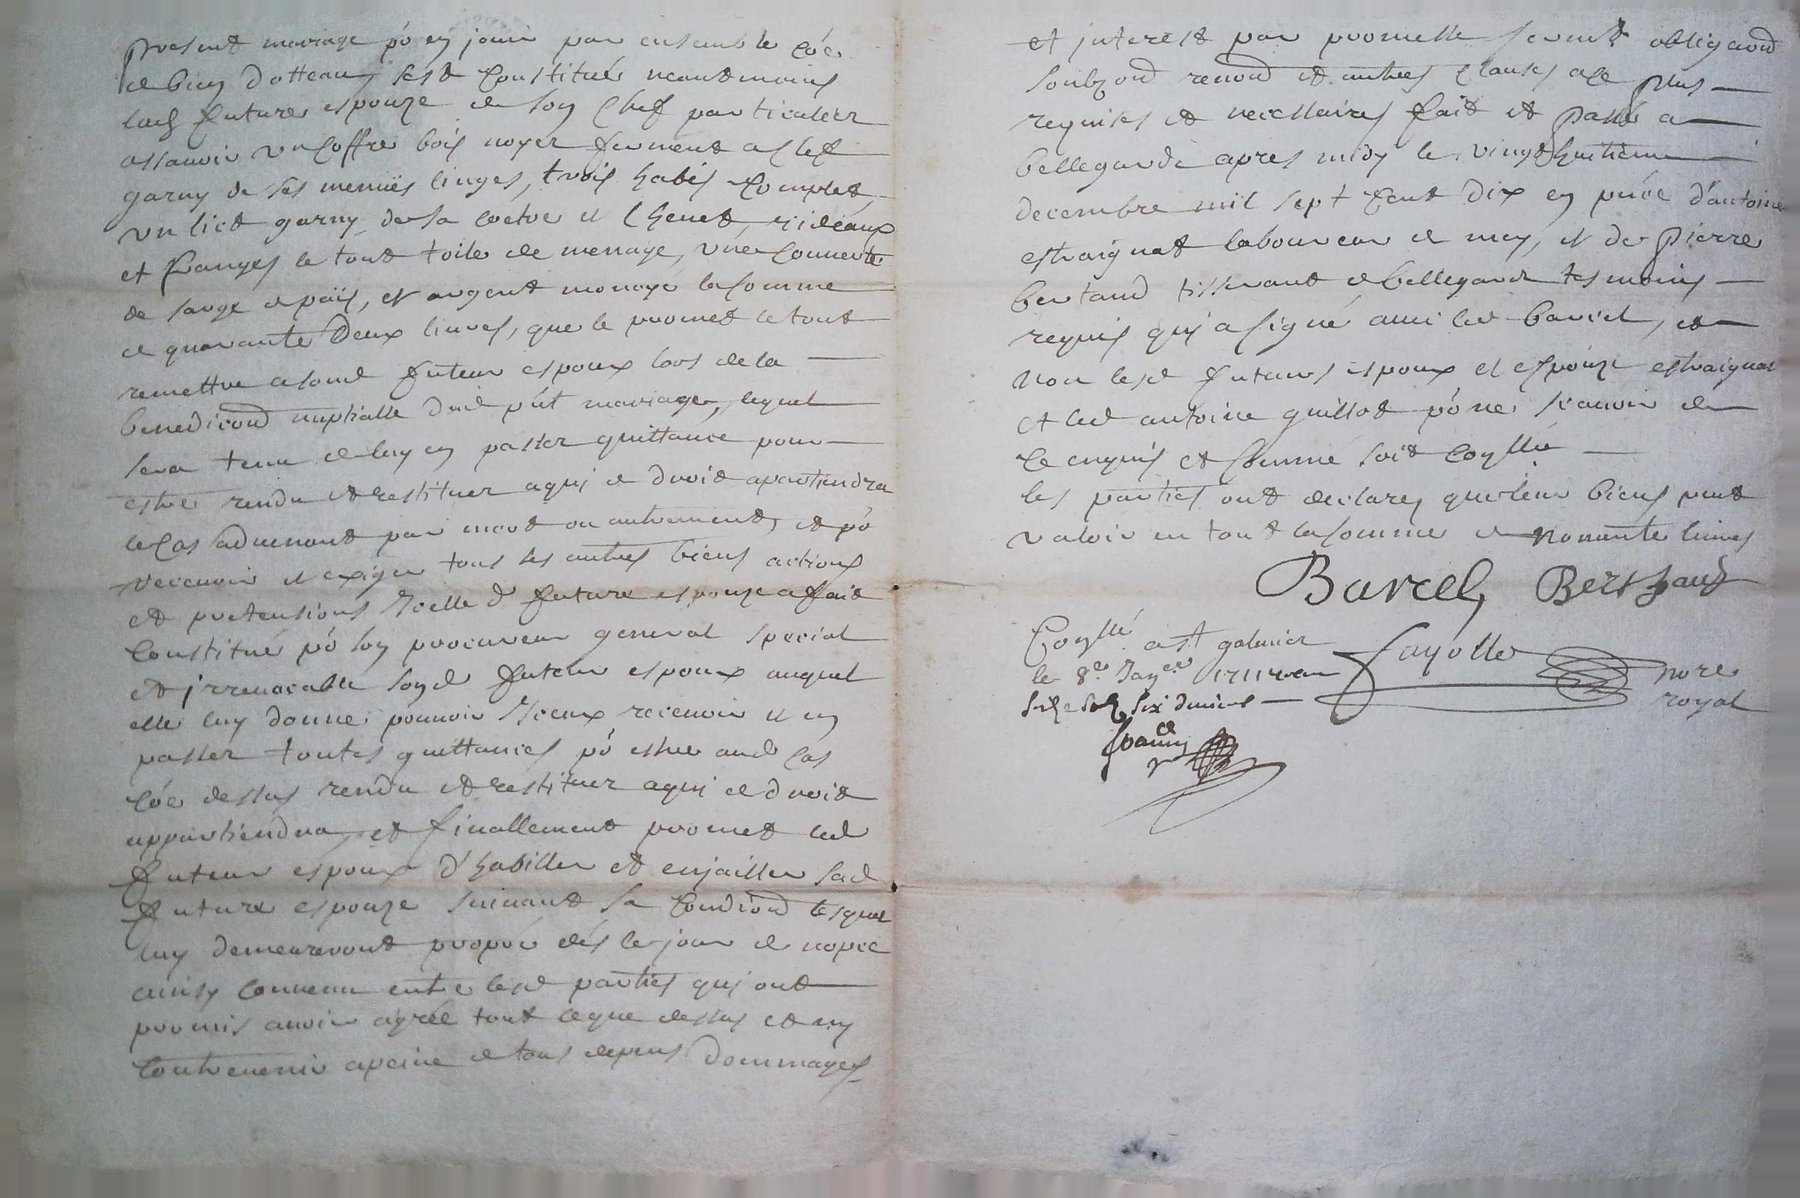 present mariage po en jouir par ensemble co͠e
de bien dottaux, s'est constitué neantmoins
lad future espouze de son chef particulier
assavoir un coffre bois noyer fermant a clef
garny de ses menües linges, trois habis complet,
un lict garny, de sa coetre et chevet, rideaux
et franges le tout toile de menage, une couverte
de sarge de païs, et argent monoyé la somme
de quarante deux livres, que le promet le tout
remettre a sond futeur espoux lors de la
benediction nuptialle dud p͠nt mariage, lequel
sera tenu de luy en passer quittance pour
estre rendu et restituer a qui de droit apartiendra
le cas advenant par mort ou autrement, et po
recevoir et exiger tous les autres biens actions
et pretensions icelle d future espouze a fait
constitué po son procureur general special
et irrevocable sond futeur espoux auquel
elle luy donne pouvoir iceux recevoir et en
passer toutes quittances po estre aud cas
co͠e dessus rendu et restituer a qui de droit
appartiendra, et finallement promet led
futeur espoux d'habiller et enjailler sad
future espouze suivant sa condition lesquel
luy demeureront propre dés le jour de nopce
ainsy convenu entre lesd parties qui ont
promis avoir agréé tout ce que dessus et ny
contrevenir a peine de tous depens dommages
et interest par promesse serment obligaond
soubzond renond et autres clauses a ce plus
requises et necessaires fait et passé a
bellegarde apres midy le vingt huitieme
decembre mil sept cent dix en p͠nce d'antoine
estraignat laboureur de mey, et de pierre
bertand tisserant de bellegarde tesmoins
requis qui a signé avec led barcel, et
non lesd futurs espoux et espouze estraignat
et led antoine guillot po ne scavoir de
ce enquis et sommé soit coñllé
les parties ont declarez que leur biens peut
valoir en tout la somme de nonante livres
Barcel, Berthaud
Coñllé a st galmier
le 8e Janer 1711 reçu
six den
Fayolle nore
royal